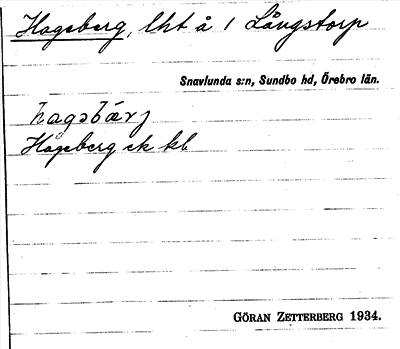 Hageberg, lht å 1 Långstorp
Snavlunda s:n, Sundbo hd, Örebro län.
hagəbärj
Hageberg ek kb
GÖRAN ZETTERBERG 1934.